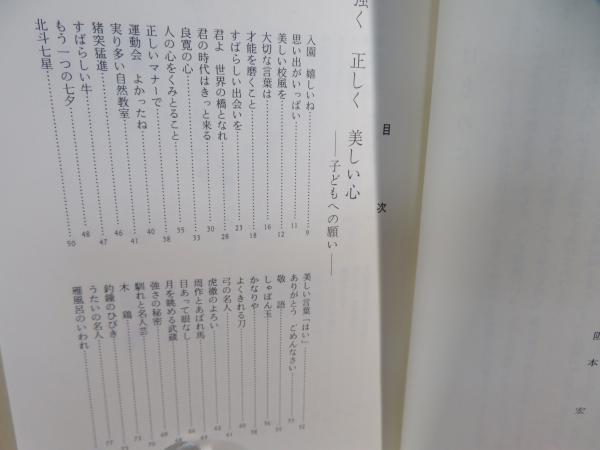 本 宏
目 次
強く 正しく 美しい心
――子どもへの願い――
入園 嬉しいね……9
思い出がいっぱい……11
美しい校風を……12
大切な言葉は……16
才能を磨くこと……18
すばらしい出会いを……22
君よ 世界の橋となれ……28
君の時代はきっと来る……30
良寛の心……33
人の心をくみとること……35
正しいマナーで……38
運動会 よかったね……40
実り多い自然教室……41
猪突猛進……46
すばらしい牛……47
もう一つの七夕……48
北斗七星……50
美しい言葉「はい」……52
ありがとう ごめんなさい
敬 語
しゃぼん玉
かなりや
よくきれる刀
弓の名人
虎徹のよろい
周作とあばれ馬
目あって眼なし
月を眺める武蔵
強さの秘密
馴れと名人芸
木 鶏
釣鐘のひびき
うたいの名人
雁風呂のいわれ……77